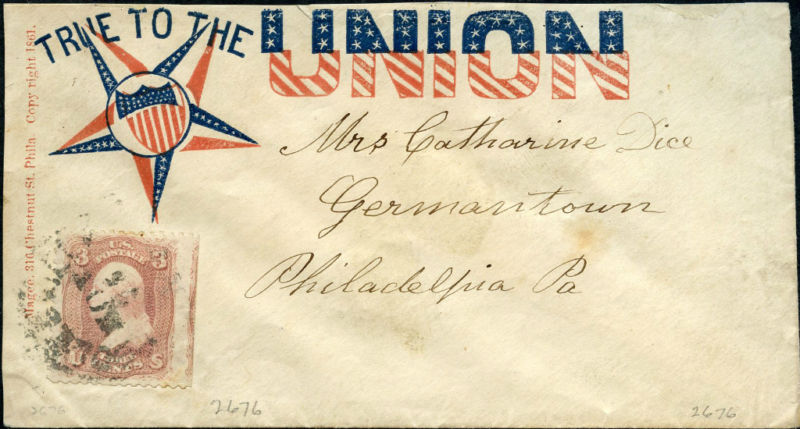 TRUE TO THE UNION
Magee, 316 Chestnut St. Phila. Copy right 1861.
Mrs Catharine Dice
Germantown
Philadelpia Pa
3 U.S. 3
POSTAGE
CENTS
2676
2676
2676